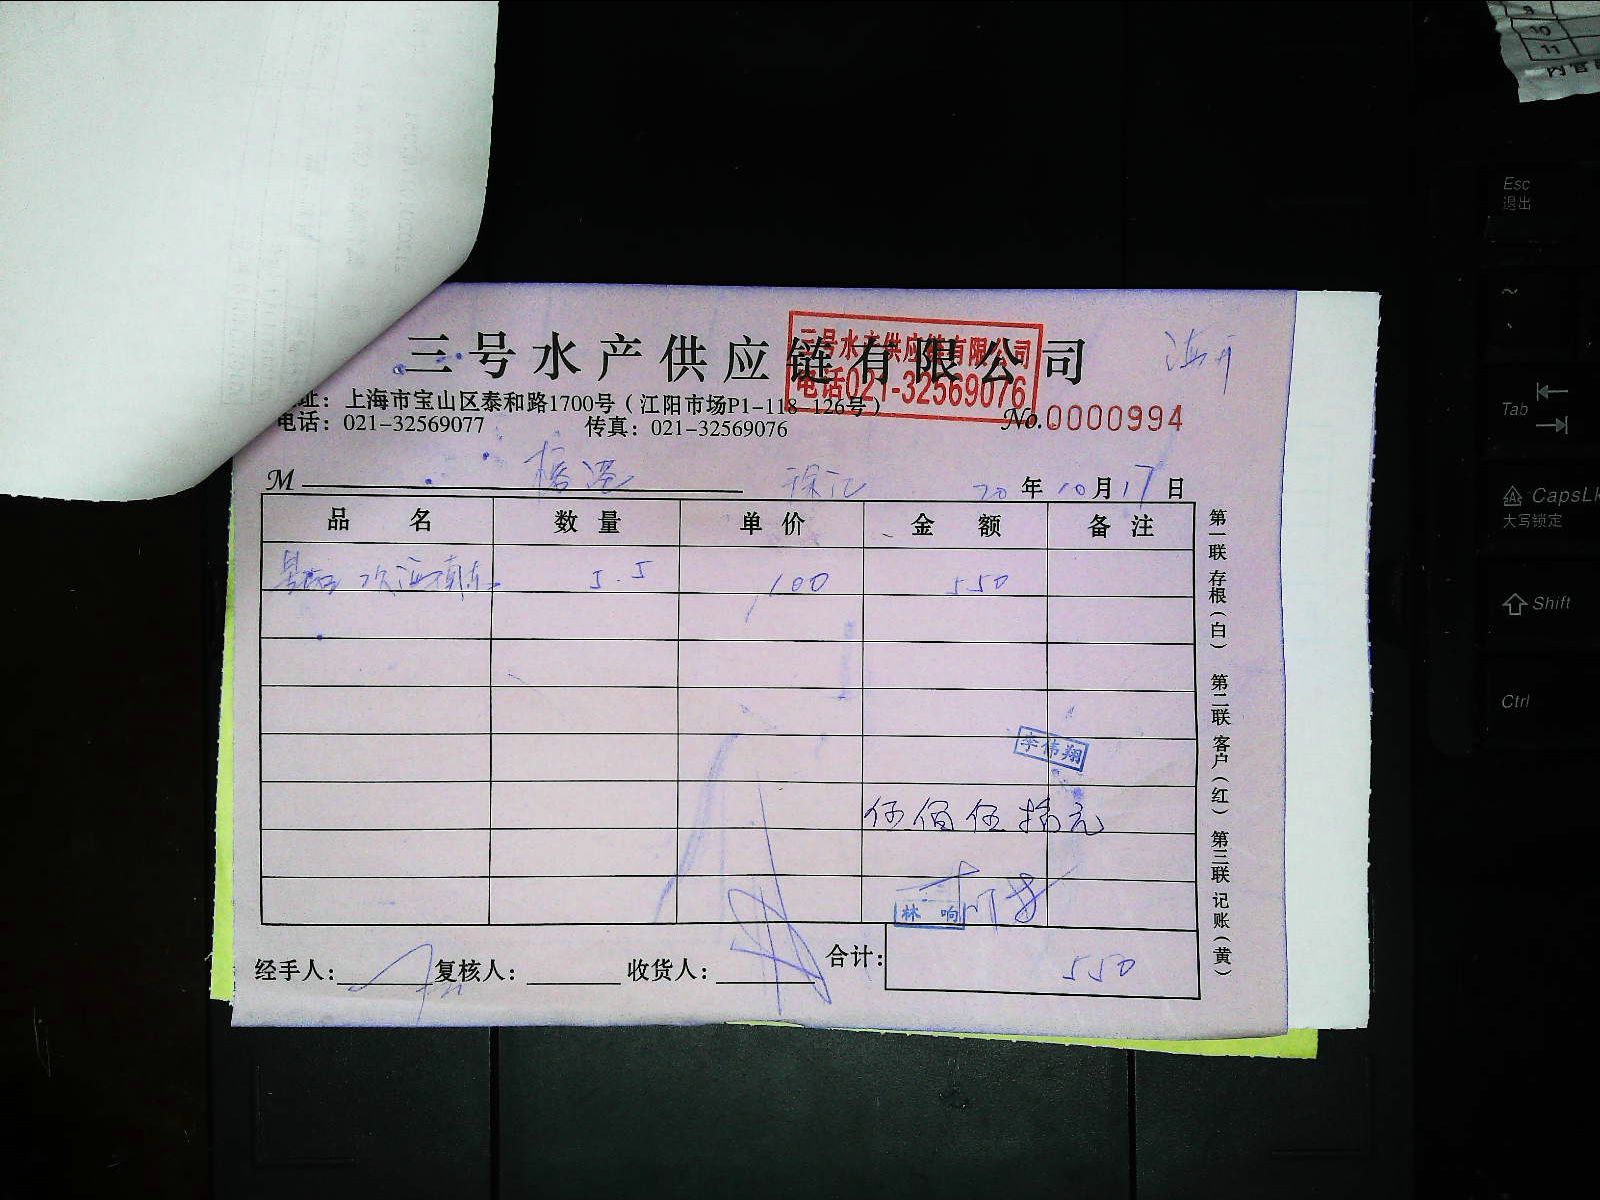 三号水产供应链有限公司
三号水产供应链有限公司
电话021-32569076
地址：上海市宝山区泰和路1700号（江阳市场P1-118-126号）
No.0000994
电话：021-32569077 传真：021-32569076
M 徐汇 20年10月17日
品名 数量 单价 金额 备注
5.5 100 550
李伟翔
伍佰伍拾元
林响
经手人： 复核人： 收货人： 合计： 550
第一联 存根（白） 第二联 客户（红） 第三联 记账（黄）
9
10
11
Esc
退出
~
Tab
CapsLk
大写锁定
Shift
Ctrl